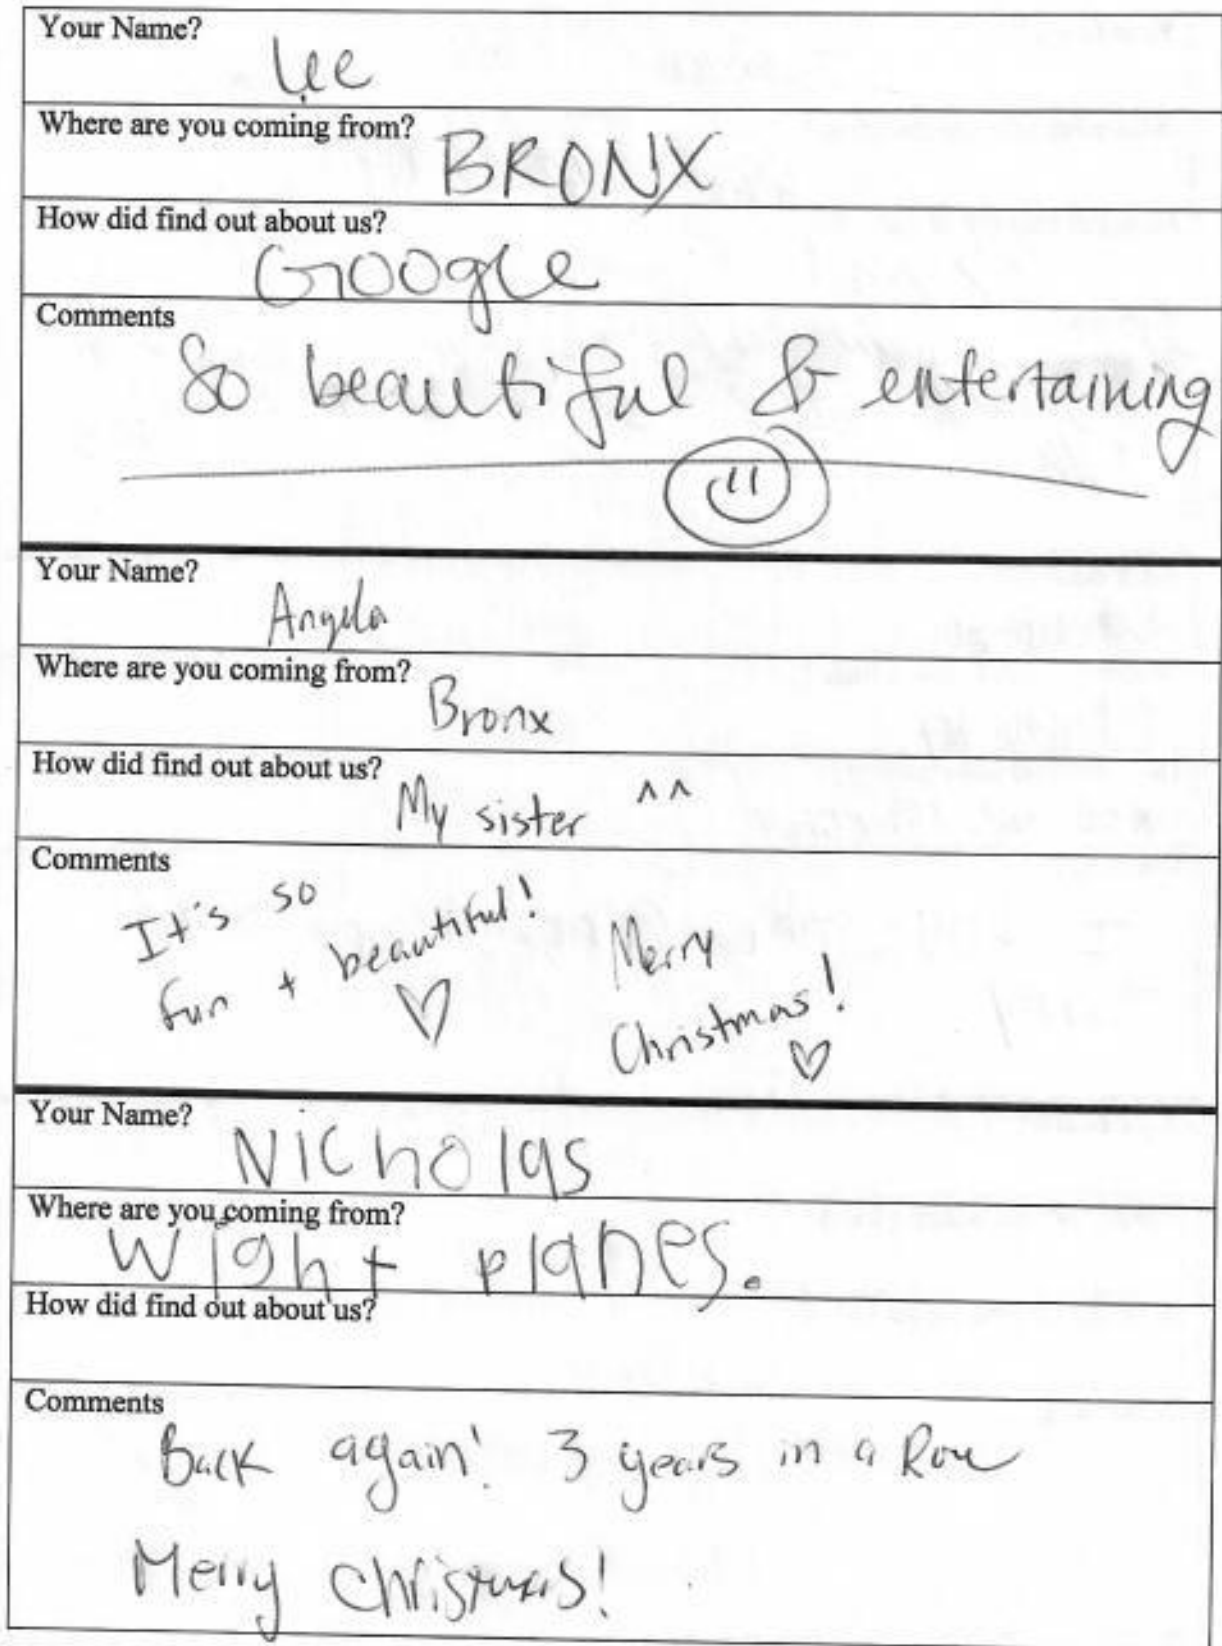 Your Name?
Lee
Where are you coming from?
BRONX
How did find out about us?
Google
Comments
So beautiful & entertaining
Your Name?
Angela
Where are you coming from?
Bronx
How did find out about us?
My sister ^^
Comments
It's so
fun + beautiful!
Merry
Christmas!
Your Name?
Nicholas
Where are you coming from?
Wight planes.
How did find out about us?
Comments
Back again! 3 years in a Row
Merry Christmas!